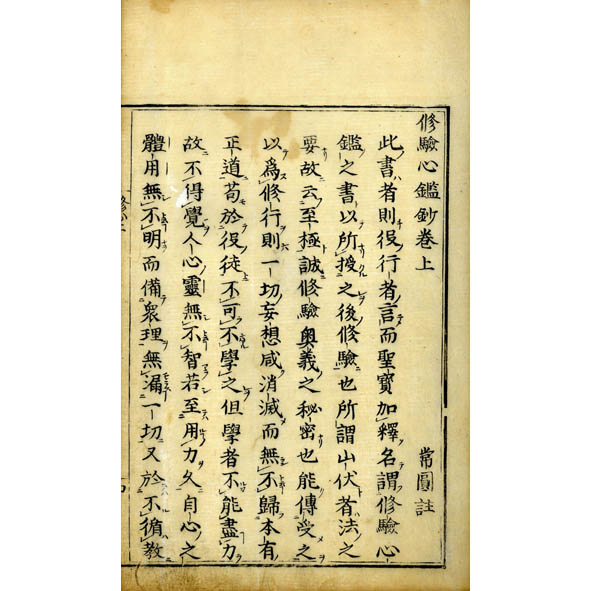 修驗心鑑鈔卷上
常圓註
此書者則役行者言而聖寶加釋名謂修驗心
鑑之書以所授之後修驗也所謂山伏者法之
要故云至極誠修驗奧義之秘密也能傳受之
以爲修行則一切妄想咸消滅而無不歸本有
正道苟於役徒不可不學之但學者不能盡力
故不得覺人心靈無不智若至用力久自心之
體用無不明而備衆理無漏一切又於不循教